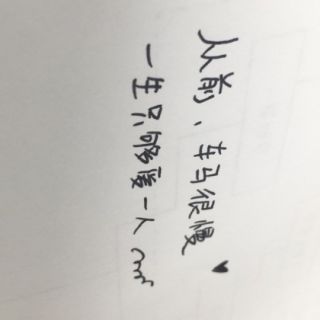 从前、车马很慢
一生只够爱一人